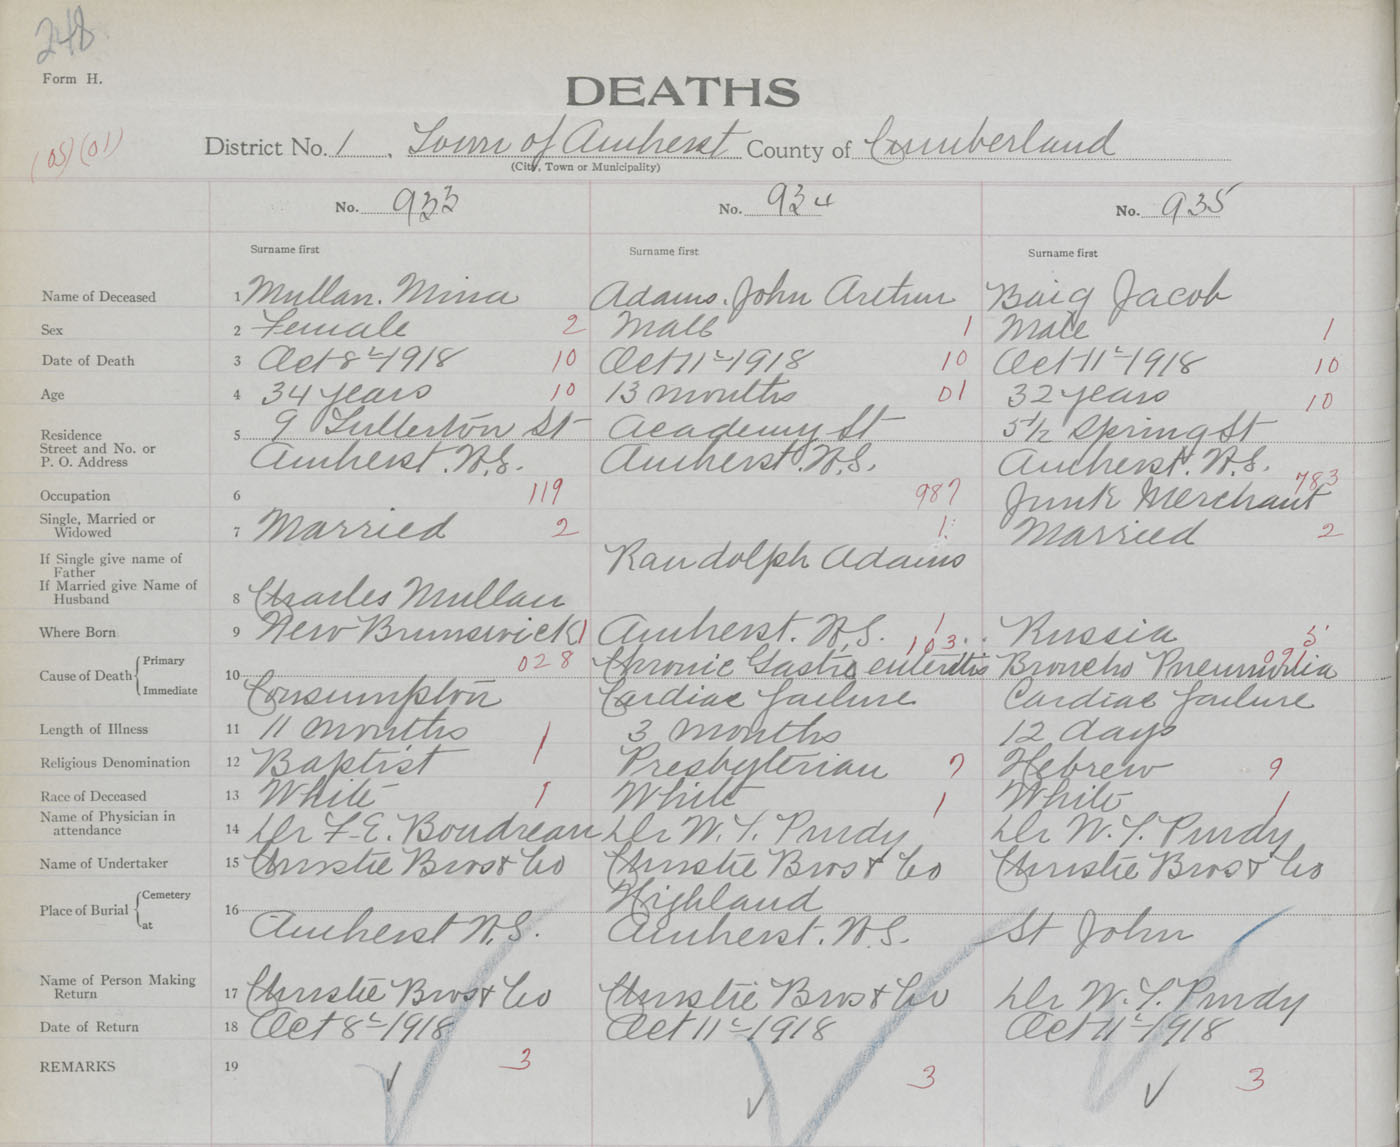 248
Form H.
DEATHS
(05) (01)
District No. 1 Town of Amherst County of Cumberland
(City, Town or Municipality)
No. 933 No. 934 No. 935
Surname first Surname first Surname first
Name of Deceased 1 Mullan. Mina Adams. John Arthur Baig Jacob
Sex 2 Female 2 Male 1 Male 1
Date of Death 3 Oct 8th 1918 10 Oct 11th 1918 10 Oct 11th 1918 10
Age 4 34 years 10 13 months 01 32 years 10
Residence
Street and No. or
P. O. Address
5 9 Fullerton St Academy St 5 1/2 Spring St
Amherst. N.S. Amherst. N.S. Amherst. N.S.
Occupation 6 119 987 Junk Merchant 783
Single, Married or
Widowed
7 Married 2 1 Married 2
If Single give name of
Father
Randolph Adams
If Married give Name of
Husband
8 Charles Mullan
Where Born 9 New Brunswick 1 Amherst. N.S. 1 Russia 5
Cause of Death Primary
Immediate
10 028 Chronic Gastro enteritis 103 Broncho Pneumonia 091
Consumption Cardiac failure Cardiac failure
Length of Illness 11 11 months 3 months 12 days
Religious Denomination 12 Baptist 1 Presbyterian 7 Hebrew 9
Race of Deceased 13 White 1 White 1 White 1
Name of Physician in
attendance
14 Dr F. E. Boudreau Dr W. T. Purdy Dr W. T. Purdy
Name of Undertaker 15 Christie Bros & Co Christie Bros & Co Christie Bros & Co
Place of Burial Cemetery
at
16 Highland
Amherst N.S. Amherst. N.S. St John
Name of Person Making
Return
17 Christie Bros & Co Christie Bros & Co Dr W. T. Purdy
Date of Return 18 Oct 8th 1918 Oct 11th 1918 Oct 11th 1918
REMARKS 19 3 3 3